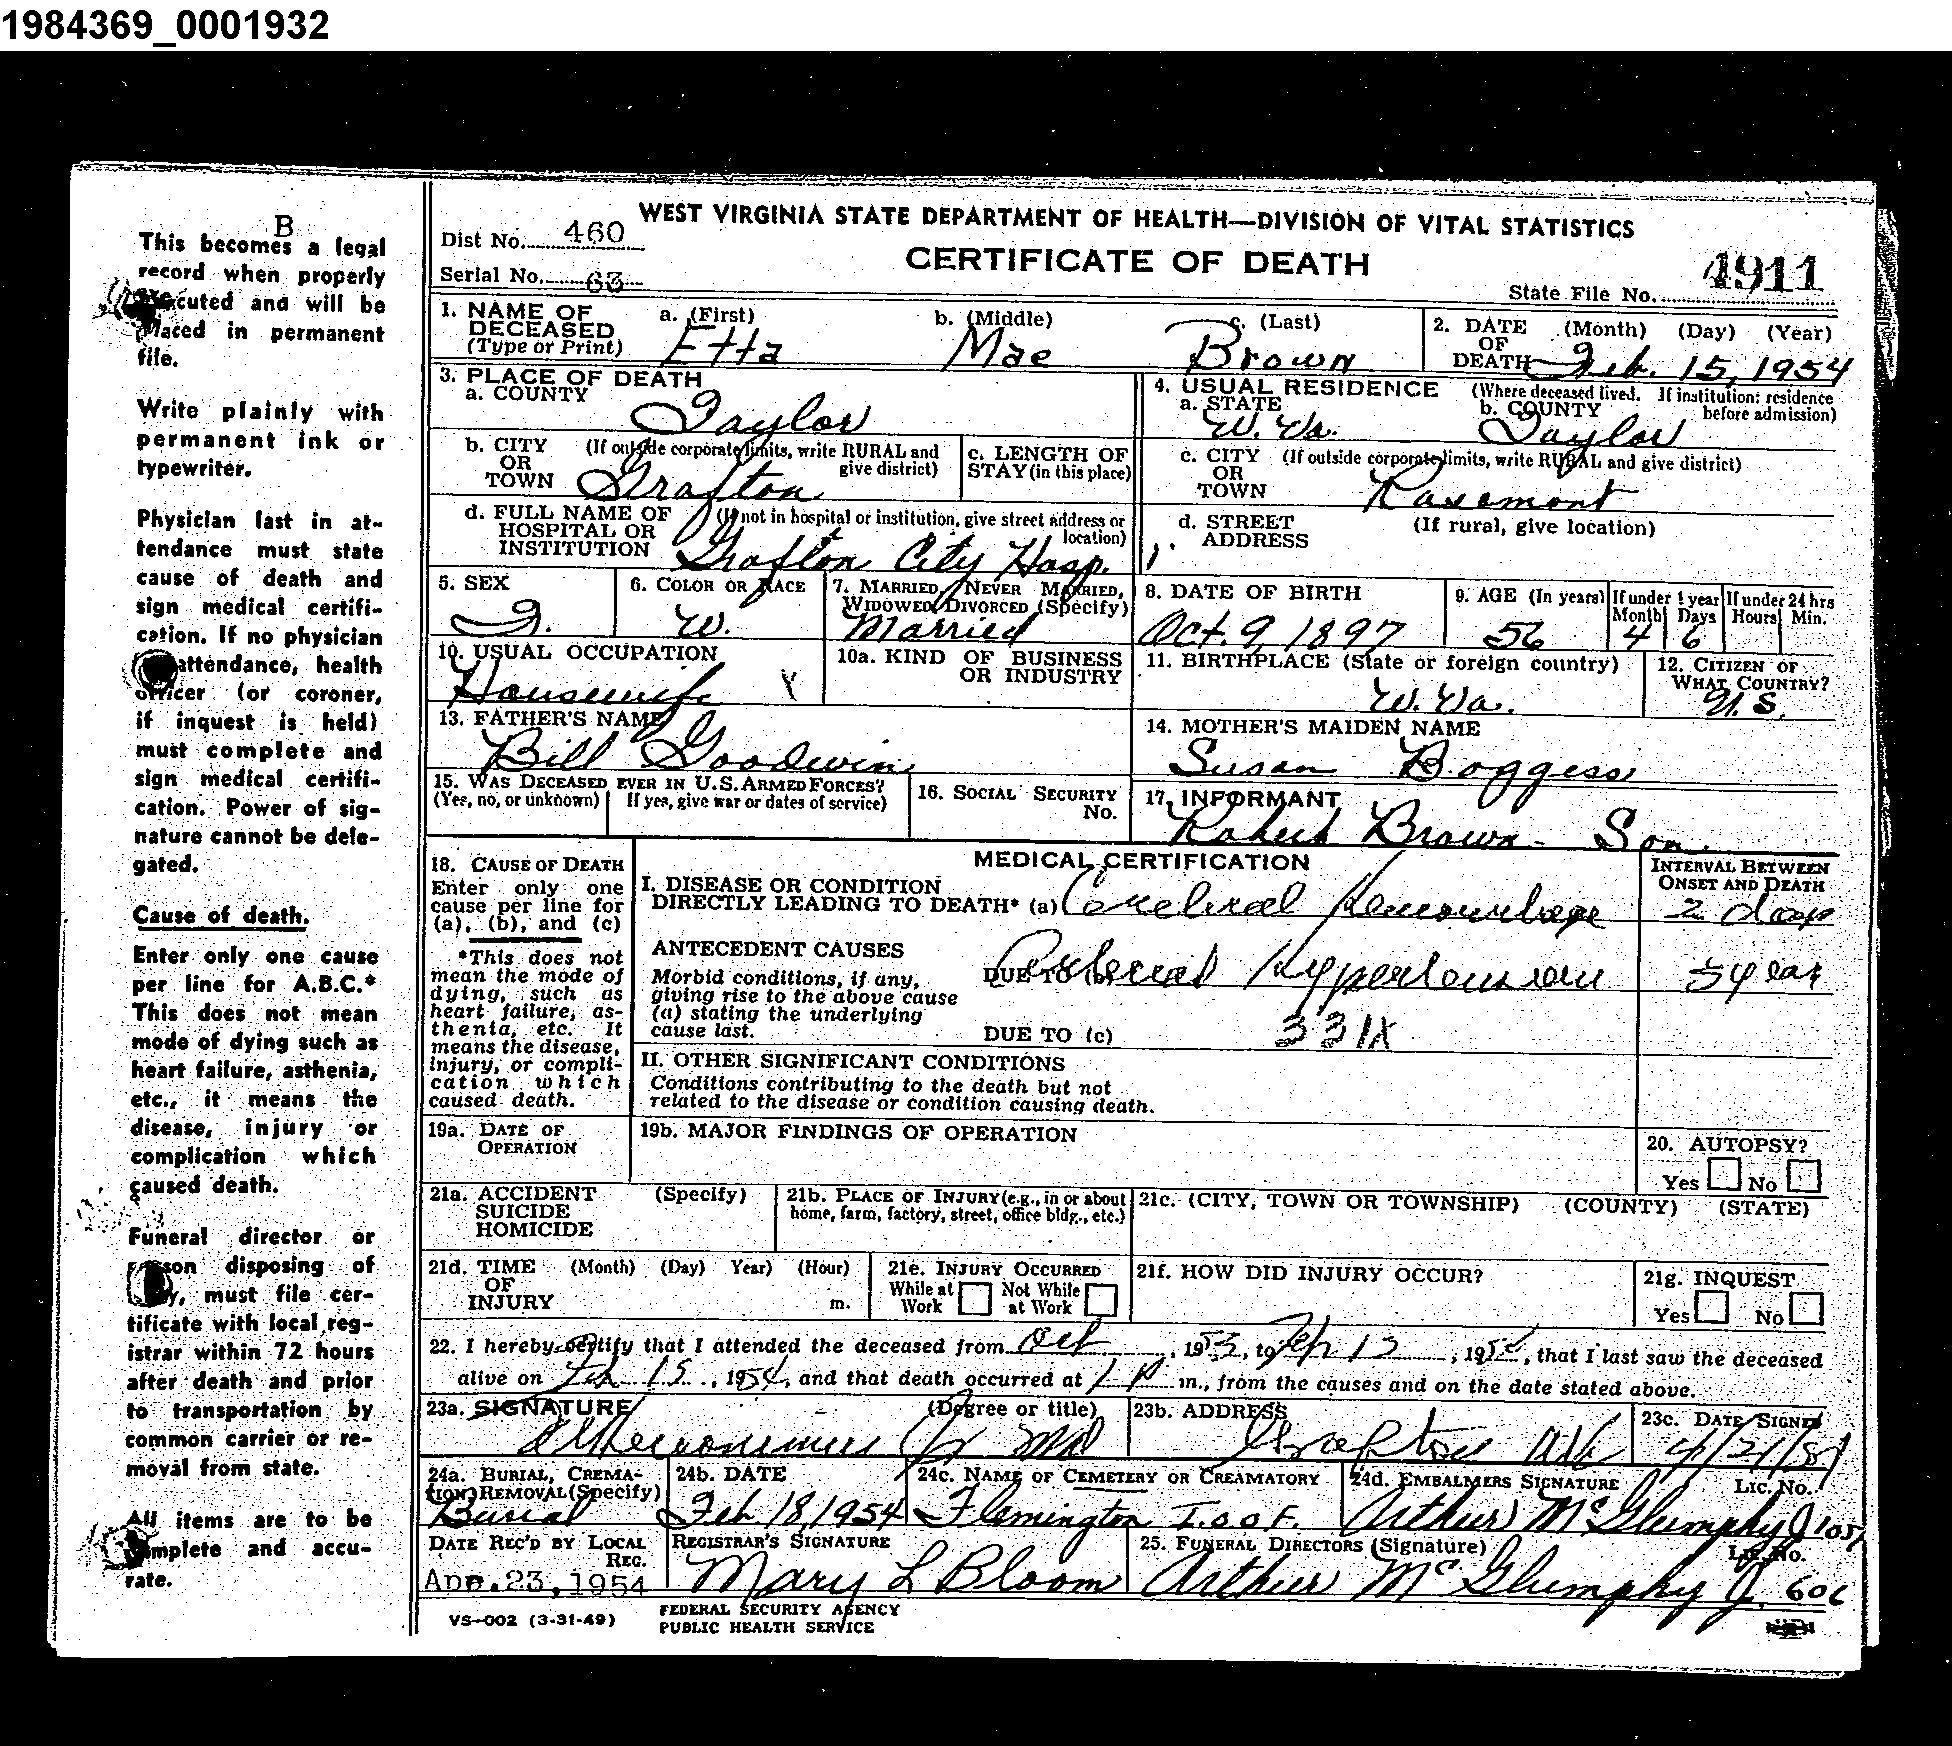 1984369_0001932
B
This becomes a legal
record when properly
executed and will be
placed in permanent
file.
Write plainly with
permanent ink or
typewriter.
Physician last in at-
tendance must state
cause of death and
sign medical certifi-
cation. If no physician
attendance, health
officer (or coroner,
if inquest is held)
must complete and
sign medical certifi-
cation. Power of sig-
nature cannot be dele-
gated.
Cause of death.
Enter only one cause
per line for A.B.C.*
This does not mean
mode of dying such as
heart failure, asthenia,
etc., it means the
disease, injury or
complication which
caused death.
Funeral director or
person disposing of
must file cer-
tificate with local reg-
istrar within 72 hours
after death and prior
to transportation by
common carrier or re-
moval from state.
All items are to be
complete and accu-
rate.
WEST VIRGINIA STATE DEPARTMENT OF HEALTH—DIVISION OF VITAL STATISTICS
Dist No. 460
CERTIFICATE OF DEATH
Serial No. 63
State File No. 4911
1. NAME OF DECEASED (Type or Print)
a. (First) Etta
b. (Middle) Mae
c. (Last) Brown
2. DATE OF DEATH (Month) (Day) (Year)
Feb. 15, 1954
3. PLACE OF DEATH
a. COUNTY Taylor
b. CITY OR TOWN (If outside corporate limits, write RURAL and give district)
Grafton
c. LENGTH OF STAY (in this place)
d. FULL NAME OF HOSPITAL OR INSTITUTION (If not in hospital or institution, give street address or location)
Grafton City Hosp.
4. USUAL RESIDENCE (Where deceased lived. If institution: residence before admission)
a. STATE W. Va.
b. COUNTY Taylor
c. CITY OR TOWN (If outside corporate limits, write RURAL and give district)
Rosemont
d. STREET ADDRESS (If rural, give location)
5. SEX F.
6. COLOR OR RACE W.
7. MARRIED, NEVER MARRIED, WIDOWED, DIVORCED (Specify)
Married
8. DATE OF BIRTH
Oct. 9, 1897
9. AGE (In years) 56
If under 1 year Month 4 Days 6
If under 24 hrs Hours Min.
10. USUAL OCCUPATION
Housewife
10a. KIND OF BUSINESS OR INDUSTRY
11. BIRTHPLACE (State or foreign country)
W. Va.
12. CITIZEN OF WHAT COUNTRY?
U.S.
13. FATHER'S NAME
Bill Goodwin
14. MOTHER'S MAIDEN NAME
Susan Boggess
15. WAS DECEASED EVER IN U.S. ARMED FORCES?
(Yes, no, or unknown) If yes, give war or dates of service)
16. SOCIAL SECURITY No.
17. INFORMANT
Robert Brown - Son.
MEDICAL CERTIFICATION
18. CAUSE OF DEATH
Enter only one
cause per line for
(a), (b), and (c)
*This does not
mean the mode of
dying, such as
heart failure, as-
thenia, etc. It
means the disease,
injury, or compli-
cation which
caused death.
INTERVAL BETWEEN ONSET AND DEATH
I. DISEASE OR CONDITION
DIRECTLY LEADING TO DEATH* (a) Cerebral Hemorrhage 2 days
ANTECEDENT CAUSES
Morbid conditions, if any,
giving rise to the above cause
(a) stating the underlying
cause last.
DUE TO (b) Arterial Hypertension 5 year
DUE TO (c) 331X
II. OTHER SIGNIFICANT CONDITIONS
Conditions contributing to the death but not
related to the disease or condition causing death.
19a. DATE OF OPERATION
19b. MAJOR FINDINGS OF OPERATION
20. AUTOPSY?
Yes No
21a. ACCIDENT SUICIDE HOMICIDE (Specify)
21b. PLACE OF INJURY (e.g., in or about home, farm, factory, street, office bldg., etc.)
21c. (CITY, TOWN OR TOWNSHIP) (COUNTY) (STATE)
21d. TIME OF INJURY (Month) (Day) Year) (Hour) m.
21e. INJURY OCCURRED
While at Work Not While at Work
21f. HOW DID INJURY OCCUR?
21g. INQUEST
Yes No
22. I hereby certify that I attended the deceased from Oct, 1953, to Feb 15, 1954, that I last saw the deceased
alive on Feb 15, 1954, and that death occurred at 1 P m., from the causes and on the date stated above.
23a. SIGNATURE (Degree or title)
Jr MD
23b. ADDRESS
Grafton
23c. DATE SIGNED
4/21/54
24a. BURIAL, CREMA-TION, REMOVAL (Specify)
Burial
24b. DATE
Feb 18, 1954
24c. NAME OF CEMETERY OR CREAMATORY
Flemington I.O.O.F.
24d. EMBALMERS SIGNATURE Lic. No.
Arthur McGlumphy J
DATE REC'D BY LOCAL REG.
Apr. 23, 1954
REGISTRAR'S SIGNATURE
Mary L Bloom
25. FUNERAL DIRECTORS (Signature) Lic. No.
Arthur McGlumphy J. 606
VS-002 (3-31-49)
FEDERAL SECURITY AGENCY
PUBLIC HEALTH SERVICE